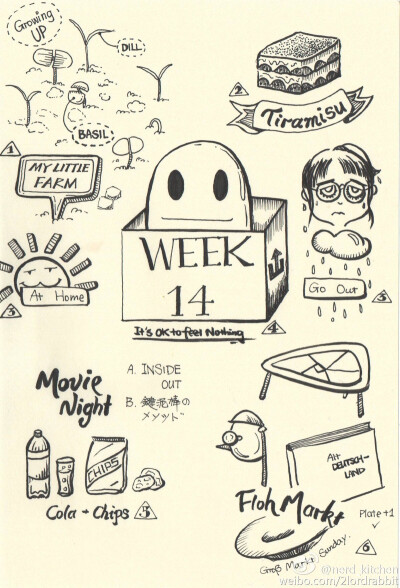 Growing
UP
DILL
BASIL
1
MY LITTLE
FARM
2
Tiramisu
WEEK
14
It's OK to feel Nothing
4
At Home
3
Go Out
5
Movie
Night
A. INSIDE
OUT
B. 鍵泥棒の
メソッド
CHIPS
Cola + Chips
5
Alt
DEUTSCH-
LAND
Floh Markt
Plate +1
Groß Markt Sunday.
6
@nerd_kitchen
weibo.com/2lordrabbit